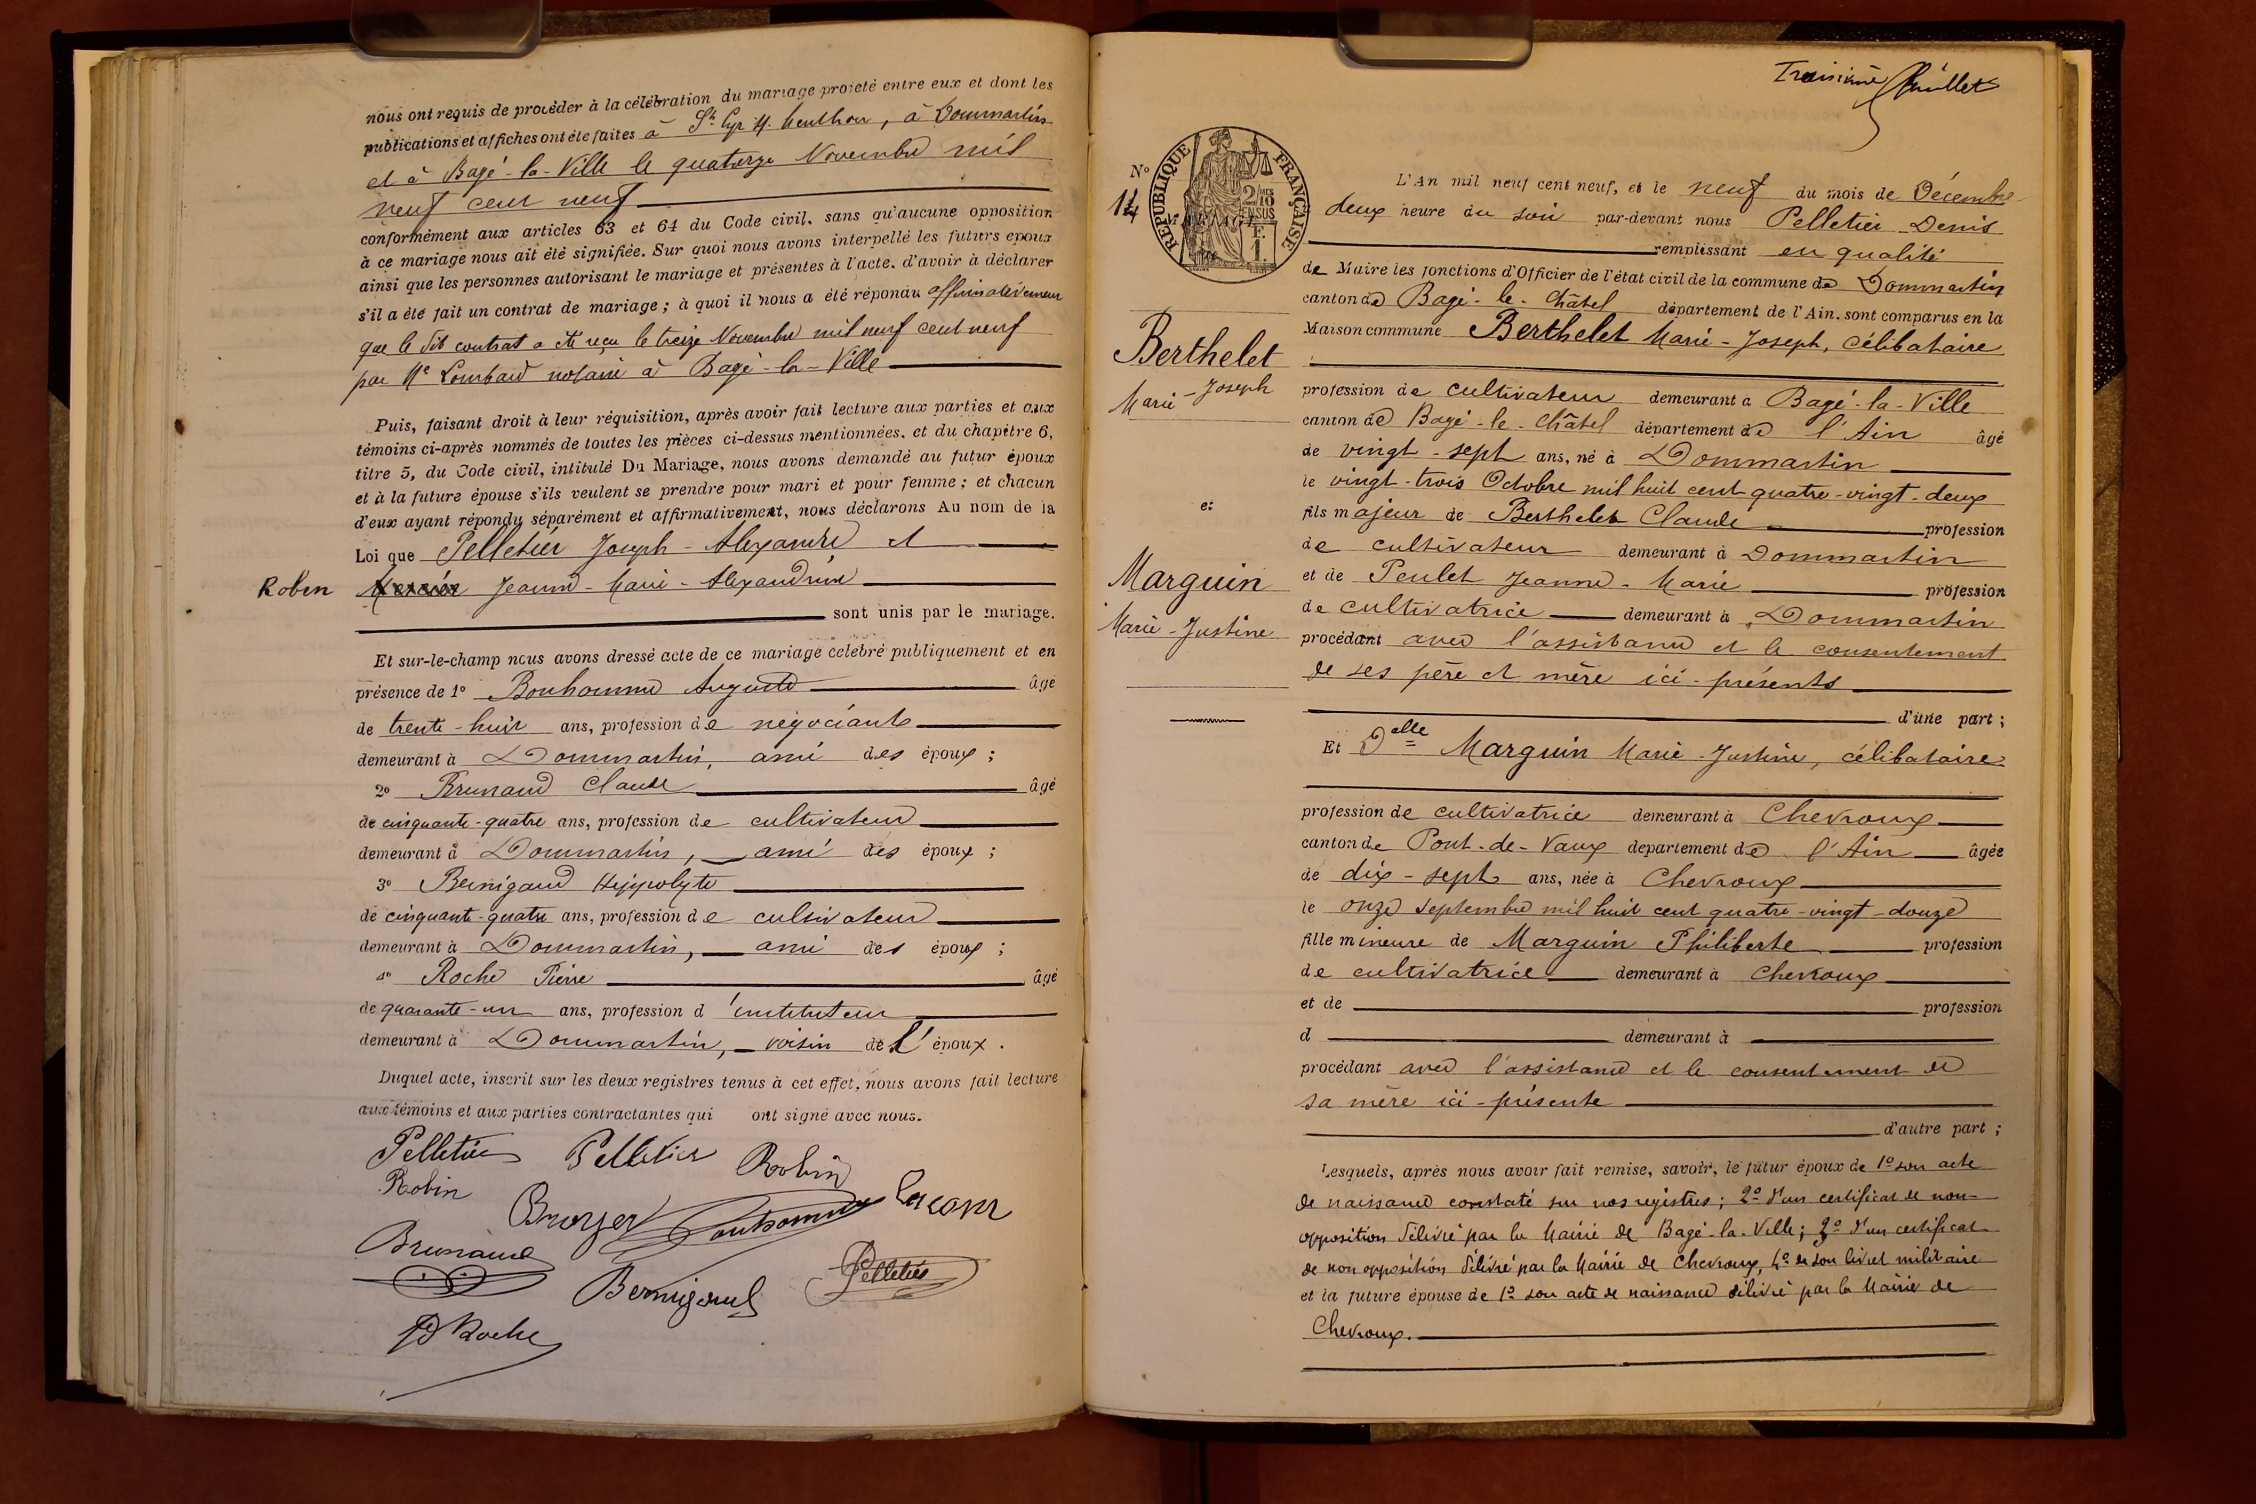 nous ont requis de procéder à la célébration du mariage projeté entre eux et dont les
publications et affiches ont été faites à St Cyr s/ Menthon, à Dommartin
et à Bagé-la-Ville le quatorze Novembre mil
neuf cent neuf
conformément aux articles 63 et 64 du Code civil, sans qu'aucune opposition
à ce mariage nous ait été signifiée. Sur quoi nous avons interpellé les futurs époux
ainsi que les personnes autorisant le mariage et présentes à l'acte, d'avoir à déclarer
s'il a été fait un contrat de mariage; à quoi il nous a été répondu affirmativement
que le dit contrat a été reçu le treize Novembre mil neuf cent neuf
par Me Lombard notaire à Bagé-la-Ville
Puis, faisant droit à leur réquisition, après avoir fait lecture aux parties et aux
témoins ci-après nommés de toutes les pièces ci-dessus mentionnées, et du chapitre 6,
titre 5, du Code civil, intitulé Du Mariage, nous avons demandé au futur époux
et à la future épouse s'ils veulent se prendre pour mari et pour femme; et chacun
d'eux ayant répondu séparément et affirmativement, nous déclarons Au nom de la
Loi que Pelletier Joseph-Alexandre et
Robin Jeanne-Marie-Alexandrine
sont unis par le mariage.
Et sur-le-champ nous avons dressé acte de ce mariage célébré publiquement et en
présence de 1º Bonhomme Auguste âgé
de trente-huit ans, profession de négociant
demeurant à Dommartin, ami des époux;
2º Brunand Claude âgé
de cinquante-quatre ans, profession de cultivateur
demeurant à Dommartin, ami des époux;
3º Bernigaud Hyppolyte
de cinquante-quatre ans, profession de cultivateur
demeurant à Dommartin, ami des époux;
4º Roche Pierre âgé
de quarante-un ans, profession d'instituteur
demeurant à Dommartin, voisin de l'époux.
Duquel acte, inscrit sur les deux registres tenus à cet effet, nous avons fait lecture
aux témoins et aux parties contractantes qui ont signé avec nous.
Pelletier Pelletier Robin
Robin
Broyer Bonhomme Lacour
Brunand
Bernigaud Pelletier
P Roche
Troisième feuillet
RÉPUBLIQUE FRANÇAISE
2/10 EN SUS
F. 1.
Nº
14
L'An mil neuf cent neuf, et le neuf du mois de Décembre
deux heure du soir par-devant nous Pelletier Denis
remplissant en qualité
de Maire les fonctions d'Officier de l'état civil de la commune de Dommartin
canton de Bagé-le-Châtel département de l'Ain, sont comparus en la
Maison commune Berthelet Marie-Joseph, célibataire
Berthelet
Marie-Joseph
et
Marguin
Marie-Justine
profession de cultivateur demeurant à Bagé-la-Ville
canton de Bagé-le-Châtel département de l'Ain âgé
de vingt-sept ans, né à Dommartin
le vingt-trois Octobre mil huit cent quatre-vingt-deux
fils majeur de Berthelet Claude profession
de cultivateur demeurant à Dommartin
et de Peulet Jeanne-Marie profession
de cultivatrice demeurant à Dommartin
procédant avec l'assistance et le consentement
de ses père et mère ici-présents
d'une part;
Et Delle Marguin Marie-Justine, célibataire
profession de cultivatrice demeurant à Chevroux
canton de Pont-de-Vaux département de l'Ain âgée
de dix-sept ans, née à Chevroux
le onze septembre mil huit cent quatre-vingt-douze
fille mineure de Marguin Philiberte profession
de cultivatrice demeurant à Chevroux
et de profession
d demeurant à
procédant avec l'assistance et le consentement de
sa mère ici-présente
d'autre part;
Lesquels, après nous avoir fait remise, savoir, le futur époux de 1º son acte
de naissance constaté sur nos registres; 2º d'un certificat de non-
opposition délivré par la Mairie de Bagé-la-Ville; 3º d'un certificat
de non opposition délivré par la Mairie de Chevroux, 4º de son livret militaire
et la future épouse de 1º son acte de naissance délivré par la Mairie de
Chevroux.